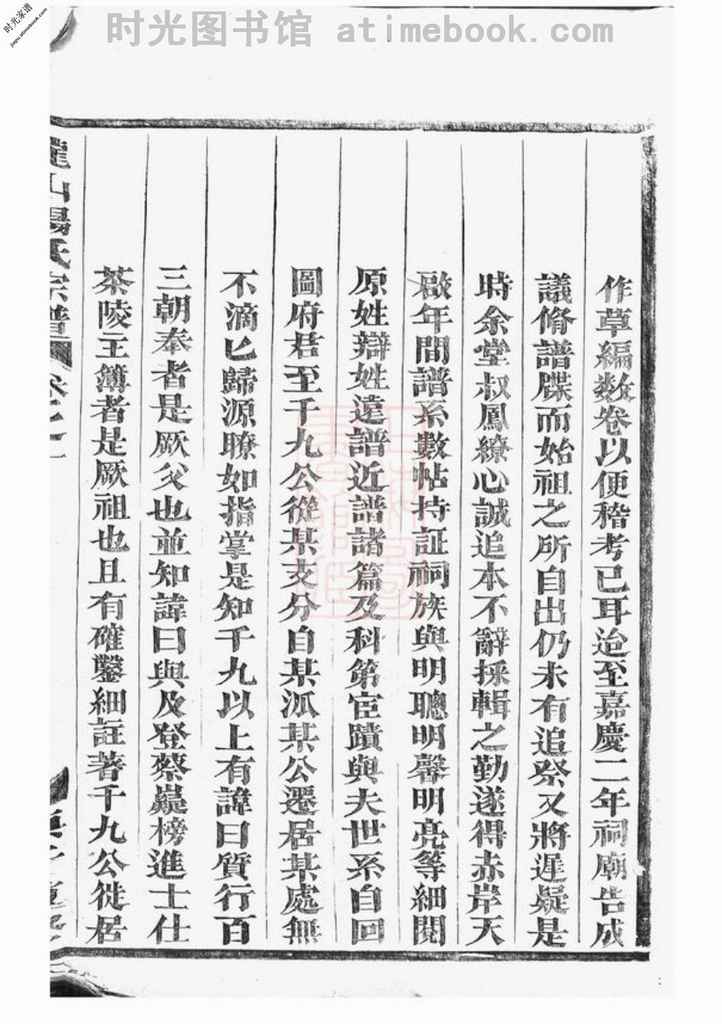 时光图书馆 atimebook.com
时光家谱
jiapu.atimebook.com
作草編数卷以便稽考已耳迨至嘉慶二年祠廟告成
議脩譜牒而始祖之所自出仍未有追祭又將遲疑是
時余堂叔鳳繚心誠追本不辭採輯之勤遂得赤岸天
啟年間譜系數帖持証祠族與明聰明馨明亮等細閱
原姓辯姓遠譜近譜諸篇及科第宦蹟與夫世系自回
圖府君至千九公從某支分自某派某公遷居某處無
不滴匕歸源瞭如指掌是知千九以上有諱曰質行百
三朝奉者是厥父也並知諱曰與及登蔡嶷榜進士仕
茶陵主簿者是厥祖也且有確鑿細註著千九公徙居
山楊氏宗譜